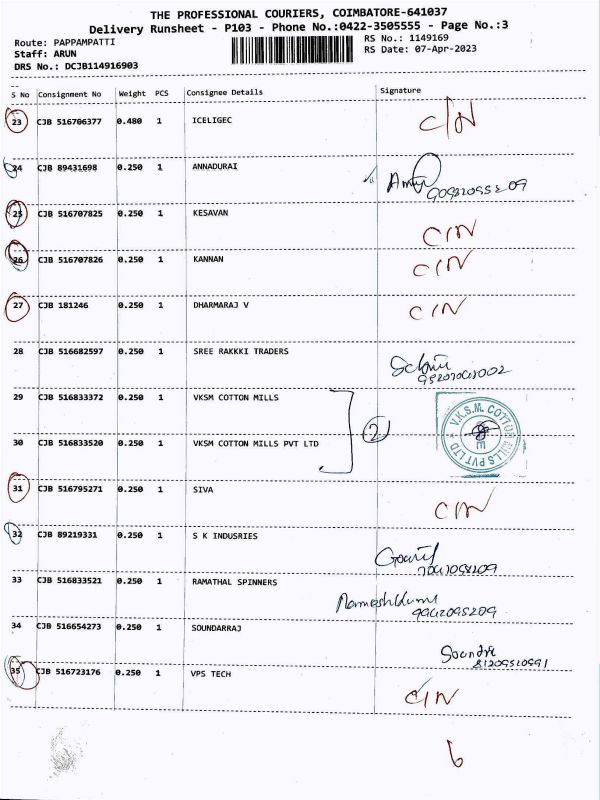 THE PROFESSIONAL COURIERS, COIMBATORE-641037
Delivery Runsheet - P103 - Phone No.:0422-3505555 - Page No.:3
Route: PAPPAMPATTI RS No.: 1149169
Staff: ARUN RS Date: 07-Apr-2023
DRS No.: DCJB114916903
S No Consignment No Weight PCS Consignee Details Signature
23 CJB 516706377 0.480 1 ICELIGEC C/N
24 CJB 89431698 0.250 1 ANNADURAI
25 CJB 516707825 0.250 1 KESAVAN C/N
26 CJB 516707826 0.250 1 KANNAN C/N
27 CJB 181246 0.250 1 DHARMARAJ V C/N
28 CJB 516682597 0.250 1 SREE RAKKKI TRADERS
29 CJB 516833372 0.250 1 VKSM COTTON MILLS
2
V.K.S.M. COTTON MILLS PVT LTD
30 CJB 516833520 0.250 1 VKSM COTTON MILLS PVT LTD
31 CJB 516795271 0.250 1 SIVA C/N
32 CJB 89219331 0.250 1 S K INDUSRIES
33 CJB 516833521 0.250 1 RAMATHAL SPINNERS
9942095209
34 CJB 516654273 0.250 1 SOUNDARRAJ
35 CJB 516723176 0.250 1 VPS TECH C/N
6